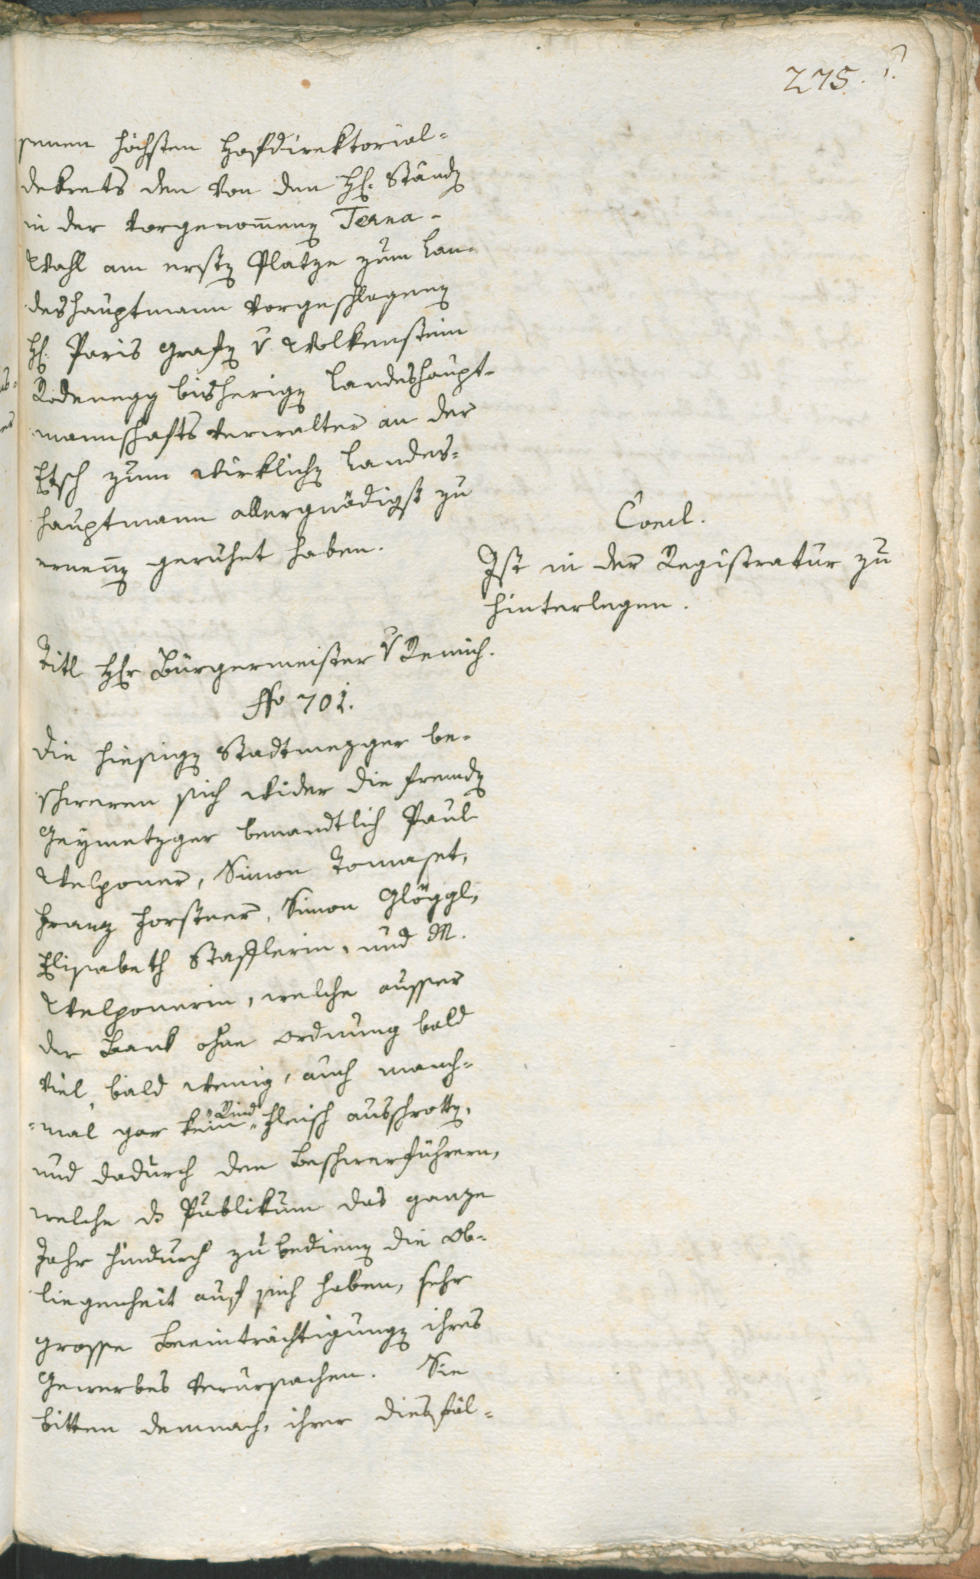 275.
senen höchsten Hofdirektorial-
dekrets den von den H. Ständ
in der vorgenommen Terna-
Wahl am ersten Platze zum Lan-
deshauptmann vorgeschlagenen
H. Paris Grafen v Wolkenstein
Rodenegg bisherigen Landeshaupt-
mannschafts Verwalter an der
Etsch zum wirklichen Landes-
hauptmann allergnädigst zu
ernennen geruhet haben.
Concl.
Ist in der Registratur zu
hinterlegen.
Titl Hr Bürgermeister v Remich.
No 701.
Die hiesigen Stadtmezger be-
schweren sich wider die fremden
Geymetzger benandtlich Paul
Welponer, Simon Tomaset,
Franz Forstner, Simon Glöggl,
Elisabeth Stafflerin, und M.
Welponerin, welche ausser
der Bank ohne Ordnung bald
viel, bald wenig, auch manch-
mal gar kein Rind-Fleisch ausschrotten,
und dadurch den Beschwerführern,
welche ds Publikum das ganze
Jahr hindurch zu bedienen die Ob-
liegenheit auf sich haben, sehr
grosse Beeinträchtigungen ihres
Gewerbes verursachen. Sie
bitten demnach, ihrer diesfäl-